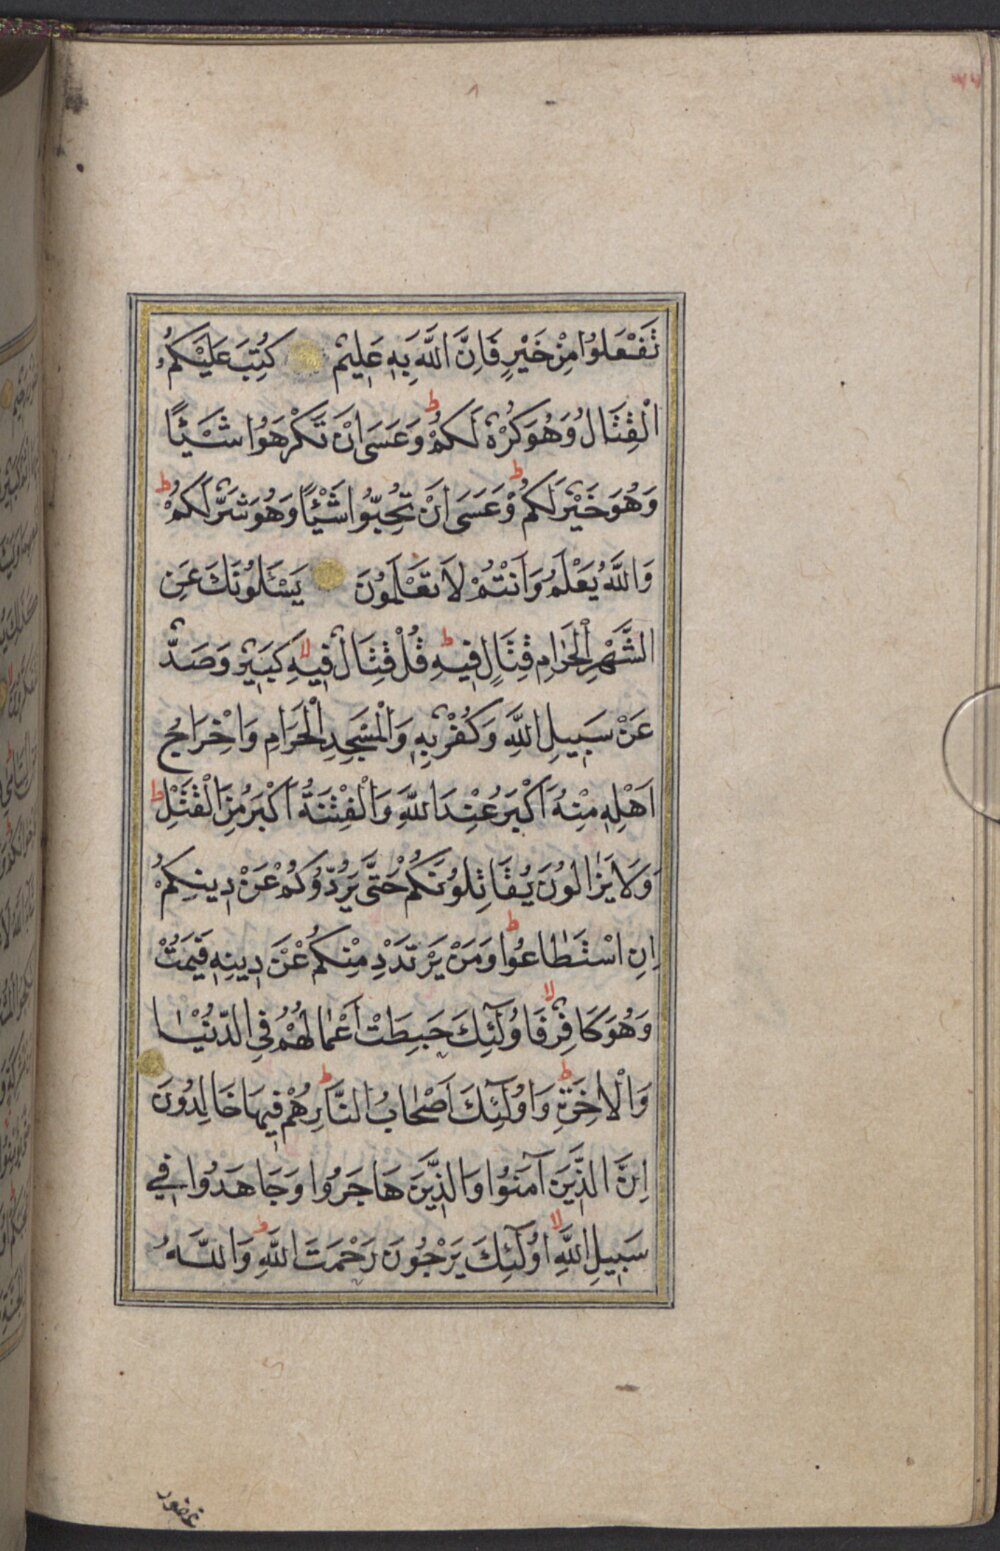 تَفْعَلُوا مِنْ خَيْرٍ فَاِنَّ اللّٰهَ بِهٖ عَلِيمٌ كُتِبَ عَلَيْكُمُ
الْقِتَالُ وَهُوَ كُرْهٌ لَكُمْ ط وَعَسَى اَنْ تَكْرَهُوا شَيْئًا
وَهُوَ خَيْرٌ لَكُمْ ط وَعَسَى اَنْ تُحِبُّوا شَيْئًا وَهُوَ شَرٌّ لَكُمْ ط
وَاللّٰهُ يَعْلَمُ وَاَنْتُمْ لَا تَعْلَمُونَ يَسْـَٔلُونَكَ عَنِ
الشَّهْرِ الْحَرَامِ قِتَالٍ فِيهِ ط قُلْ قِتَالٌ فِيهِ كَبِيرٌ لا وَصَدٌّ
عَنْ سَبِيلِ اللّٰهِ وَكُفْرٌ بِهٖ وَالْمَسْجِدِ الْحَرَامِ وَاِخْرَاجُ
اَهْلِهٖ مِنْهُ اَكْبَرُ عِنْدَ اللّٰهِ وَالْفِتْنَةُ اَكْبَرُ مِنَ الْقَتْلِ ط
وَلَا يَزَالُونَ يُقَاتِلُونَكُمْ حَتَّى يَرُدُّوكُمْ عَنْ دِينِكُمْ
اِنِ اسْتَطَاعُوا ط وَمَنْ يَرْتَدِدْ مِنْكُمْ عَنْ دِينِهٖ فَيَمُتْ
وَهُوَ كَافِرٌ لا فَاُولٰٓئِكَ حَبِطَتْ اَعْمَالُهُمْ فِي الدُّنْيَا
وَالْاٰخِرَةِ ط وَاُولٰٓئِكَ اَصْحَابُ النَّارِ ط هُمْ فِيهَا خَالِدُونَ
اِنَّ الَّذِينَ آمَنُوا وَالَّذِينَ هَاجَرُوا وَجَاهَدُوا فِي
سَبِيلِ اللّٰهِ لا اُولٰٓئِكَ يَرْجُونَ رَحْمَتَ اللّٰهِ ط وَاللّٰهُ
غفور